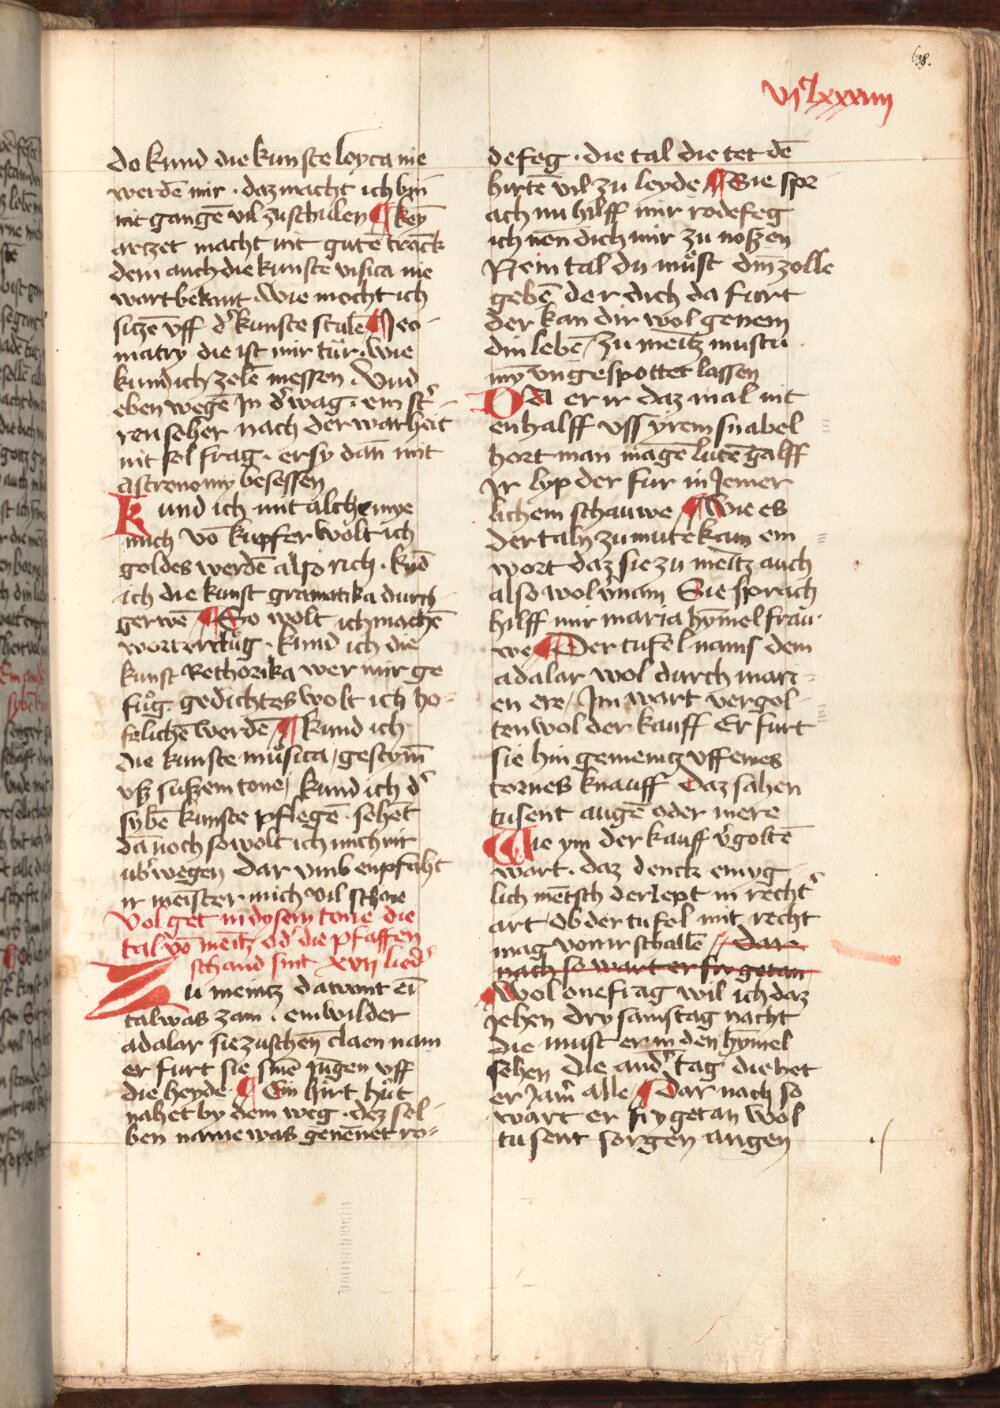 698.
vjᶜlxxxiiij
do kund die kunste loyca nie
werdē mir · daz macht ich bin
nit gangē vil zu schulen ¶ keȳ
arczet macht nit gutē tranck
dem auch die kunste visica nie
wart bekant · Wie mocht ich
siczē vff d' kunste stulē ¶ Jeo-
matry die ist mir tür · wie
kund ich zelē messen · Vnd
eben wegē In d' wag · ein st'
ren seher nach der warheit
nit sel frag · er sy dan̄ mit
astronomy besessen
Kund ich mit alchemye
mich vō kupfer wolt ich
goldes werdē also rich · kūd
ich die kunst gramatika durch
gerwē ¶ So wolt ich machē
wort wͤ clůg · kund ich die
kunst Rethorika wer mir ge
fůg · gedichtes wolt ich ho-
felichē werdē ¶ kund ich
die kunste můsica / gestym̄
vsz suszem tone / kund ich d'
sybē kunste pflegē · sehēt
dānoch so wolt ich mich nit
vb'wegen dar vmb enpfaht
ir meister mich vil schone
Volget in dysem tone die
tal vō meītz od' die pfaffen
schand sint xvij lied'
Zu meintz da wont eī
tal was zam · ein wilder
adalar sie zuschen claen nam
er furt sie sinē jūgen vff
die heyde ¶ Ein hirt hůt
nahet by dem weg · dez sel-
ben name was genēnet ro-
defeg · die tal die tet dē
hirtē vil zu leyde ¶ Sie spr
ach nu hilff mir rodefeg
ich nen dich mir zu noszen
Nein tal du můst din zolle
gebē der dich da furt
der kan dir wol genem
din lebē / zu meītz mustu
mȳ vngespottet lassen
Da er ir daz mal nit
enhalff vss yrem snabel
hort man māgē lutē galff
Ir lyp der fur in Jemer
lichem schauwe ¶ Wie es
der taln zu mute kam ein
wort daz sie zu meītz auch
also wol v'nam Sie sprach
hilff mir maria hȳmelfrau-
we ¶ Der tufel nams dem
adalar wol durch mari-
en ere / Im wart vergol-
ten wol der kauff Er furt
sie hin gemeintz vff eines
tornes knauff Daz sahen
tusent augē oder mere
Wie ym der kauff v'goltē
wart · daz denck ein yg
lich mētsch der lept in recht'
art Ob der tufel mit recht
mag von ir schallē // dar
nach so wart er fry getan
¶ Wol one frag wil ich daz
Jehen dry samstag nacht
die must er in den hȳmel
sehen die and' tag die het
er Jam' alle ¶ Dar nach so
wart er fry getan Wol
tusent sorgen augen